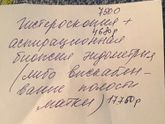 4500
гистероскопия +
4680р
аспирационная
биопсия эндометрия
(либо выскабли-
вание полости
матки) 17.750 р